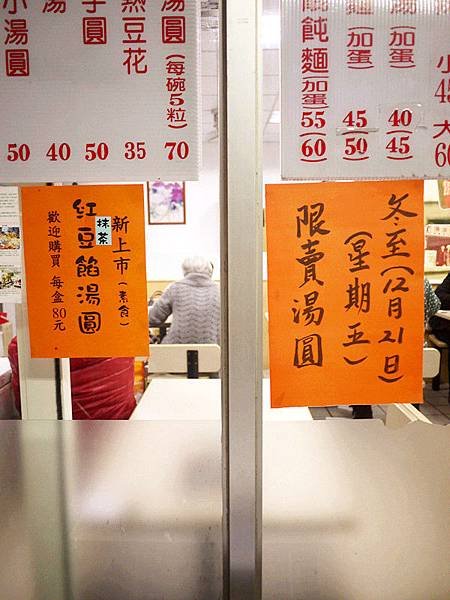 湯圓(每碗5粒) 70
熱豆花 35
子圓 50
湯 40
小湯圓 50
餛飩麵(加蛋) 55 (60)
麵(加蛋) 45 (50)
湯(加蛋) 40 (45)
小 45
大 60
新上市(素食)
抹茶
紅豆餡湯圓
歡迎購買 每盒80元
冬至(12月21日)
(星期五)
限賣湯圓